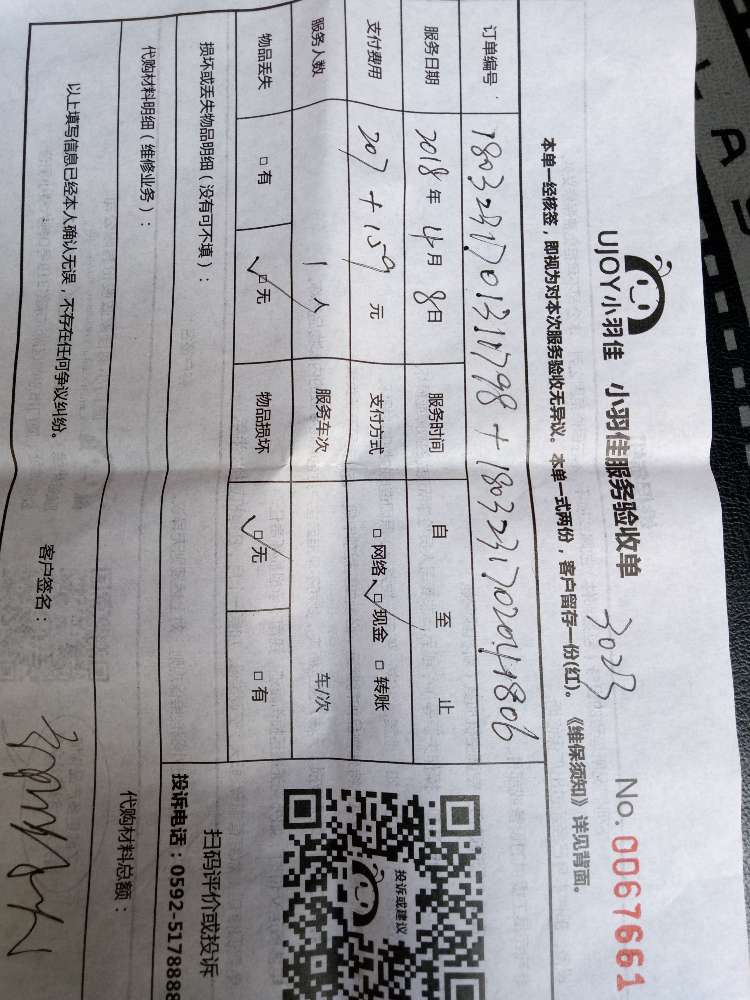 UJOY小羽佳 小羽佳服务验收单 3023 No. 0067661
本单一经核签，即视为对本次服务验收无异议。本单一式两份，客户留存一份(红)。《维保须知》详见背面。
订单编号：
服务日期 2018年4月8日 服务时间 自 至 止
支付费用 207+159元 支付方式 □网络 ✓□现金 □转账
服务人数 1人 服务车次 车/次
物品丢失 □有 ✓□无 物品损坏 ✓□无 □有
损坏或丢失物品明细（没有可不填）：
代购材料明细（维修业务）： 代购材料总额：
以上填写信息已经本人确认无误，不存在任何争议纠纷。 客户签名：
投诉或建议
扫码评价或投诉
投诉电话：0592-5178888